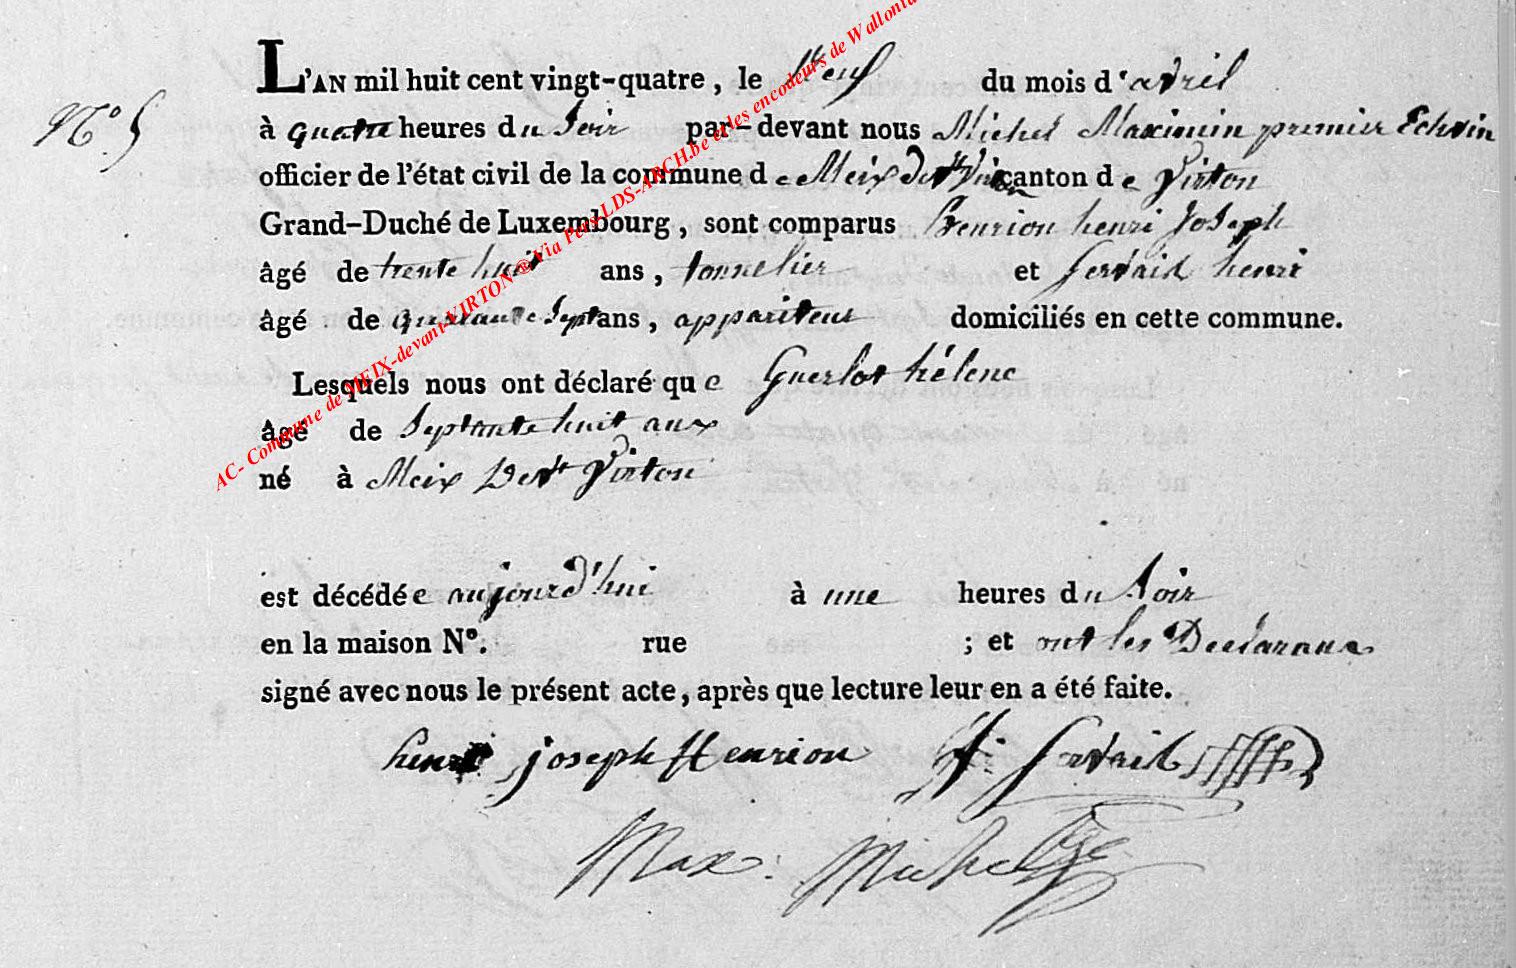 N.° 5
L'AN mil huit cent vingt-quatre, le neuf du mois d'avril
à quatre heures du Soir par-devant nous Michel Maximin premier Echvin
officier de l'état civil de la commune de Meix devt Virton canton de Virton
Grand-Duché de Luxembourg, sont comparus henrion henri Joseph
âgé de trente huit ans, tonnelier et Servais henri
âgé de quarante Sept ans, appariteur domiciliés en cette commune.
Lesquels nous ont déclaré que Guerlot hélene
âgé de Septante huit ans
né à Meix Devt Virton
est décédée aujourd'hui à une heures du Soir
en la maison N°. rue ; et ont les Declarans
signé avec nous le présent acte, après que lecture leur en a été faite.
henri joseph Henrion h: Servais
Max: Michel
AC- Commune de MEIX-devant-VIRTON ® Via Pers-LDS-ARCH.be et les encodeurs de Wallonie